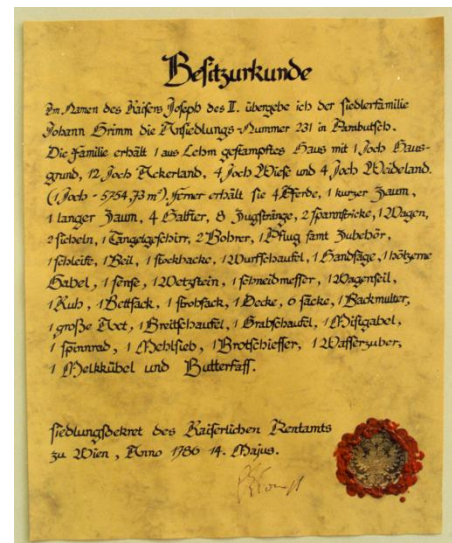 Besitzurkunde
Im Namen des Kaisers Joseph des II. übergebe ich der Siedlerfamilie
Johann Grimm die Ansiedlungs-Nummer 231 in Parabutsch.
Die Familie erhält 1 aus Lehm gestampftes Haus mit 1 Joch Haus-
grund, 12 Joch Ackerland, 4 Joch Wiese und 4 Joch Weideland.
(1 Joch - 5754,73 m²). Ferner erhält sie 4 Pferde, 1 kurzer Zaum,
1 langer Zaum, 4 Halfter, 8 Zugstränge, 2 Spannstricke, 1 Wagen,
2 Sicheln, 1 Tängelgeschirr, 2 Bohrer, 1 Pflug samt Zubehör,
1 Schleife, 1 Beil, 1 Stockhacke, 1 Wurfschaufel, 1 Handsäge, 1 hölzerne
Gabel, 1 Sense, 1 Wetzstein, 1 Schneidmesser, 1 Wagenseil,
1 Kuh, 1 Bettsack, 1 Strohsack, 1 Decke, 6 Säcke, 1 Backmulter,
1 große Axt, 1 Breitschaufel, 1 Grabschaufel, 1 Mistgabel,
1 Spinnrad, 1 Mehlsieb, 1 Brotschiesser, 1 Wasserzuber,
1 Melkkübel und Butterfaß.
Siedlungsdekret des Kaiserlichen Rentamts
zu Wien, Anno 1786 14. Majus.